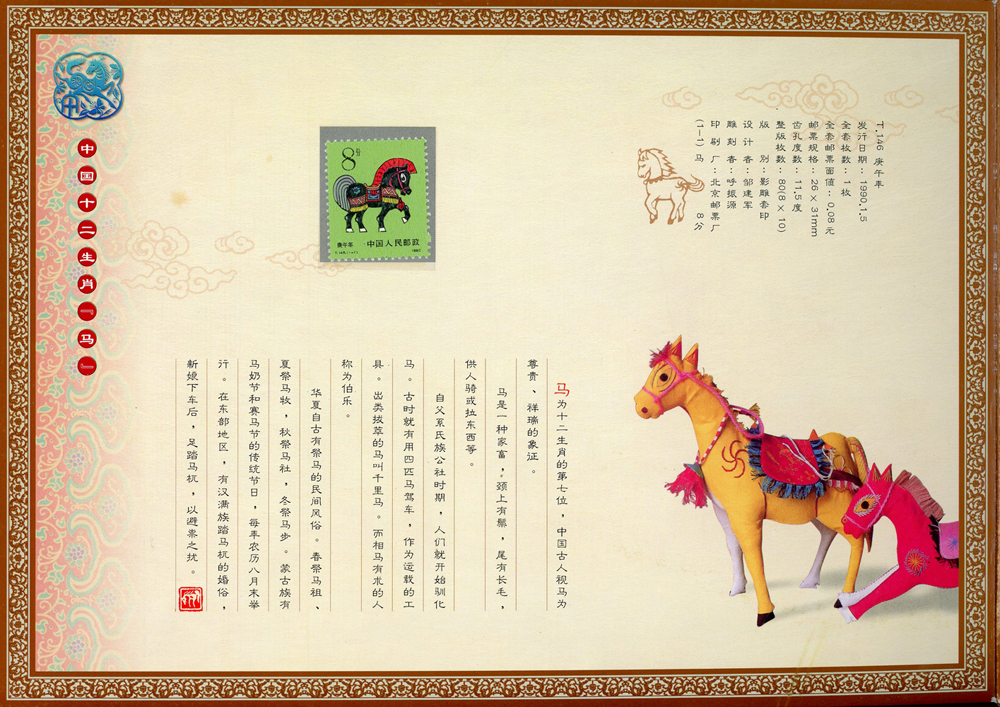 T.146 庚午年
发行日期：1990.1.5
全套枚数：1枚
全套邮票面值：0.08元
邮票规格：26×31mm
齿孔度数：11.5度
整版枚数：80(8×10)
版别：影雕套印
设计者：邹建军
雕刻者：呼振源
印刷厂：北京邮票厂
(1-1) 马 8分
8分
庚午年
中国人民邮政
马为十二生肖的第七位，中国古人视马为
尊贵、祥瑞的象证。
马是一种家富。颈上有鬃，尾有长毛，
供人骑或拉东西等。
自父系氏族公社时期，人们就开始驯化
马。古时就有用四匹马驾车，作为运载的工
具。出类拔萃的马叫千里马。而相马有术的人
称为伯乐。
华夏自古有祭马的民间风俗。春祭马祖、
夏祭马牧，秋祭马社，冬祭马步。蒙古族有
马奶节和赛马节的传统节日，每年农历八月末举
行。在东部地区，有汉满族踏马杌的婚俗，
新娘下车后，足踏马杌，以避祟之扰。
中国十二生肖—马—